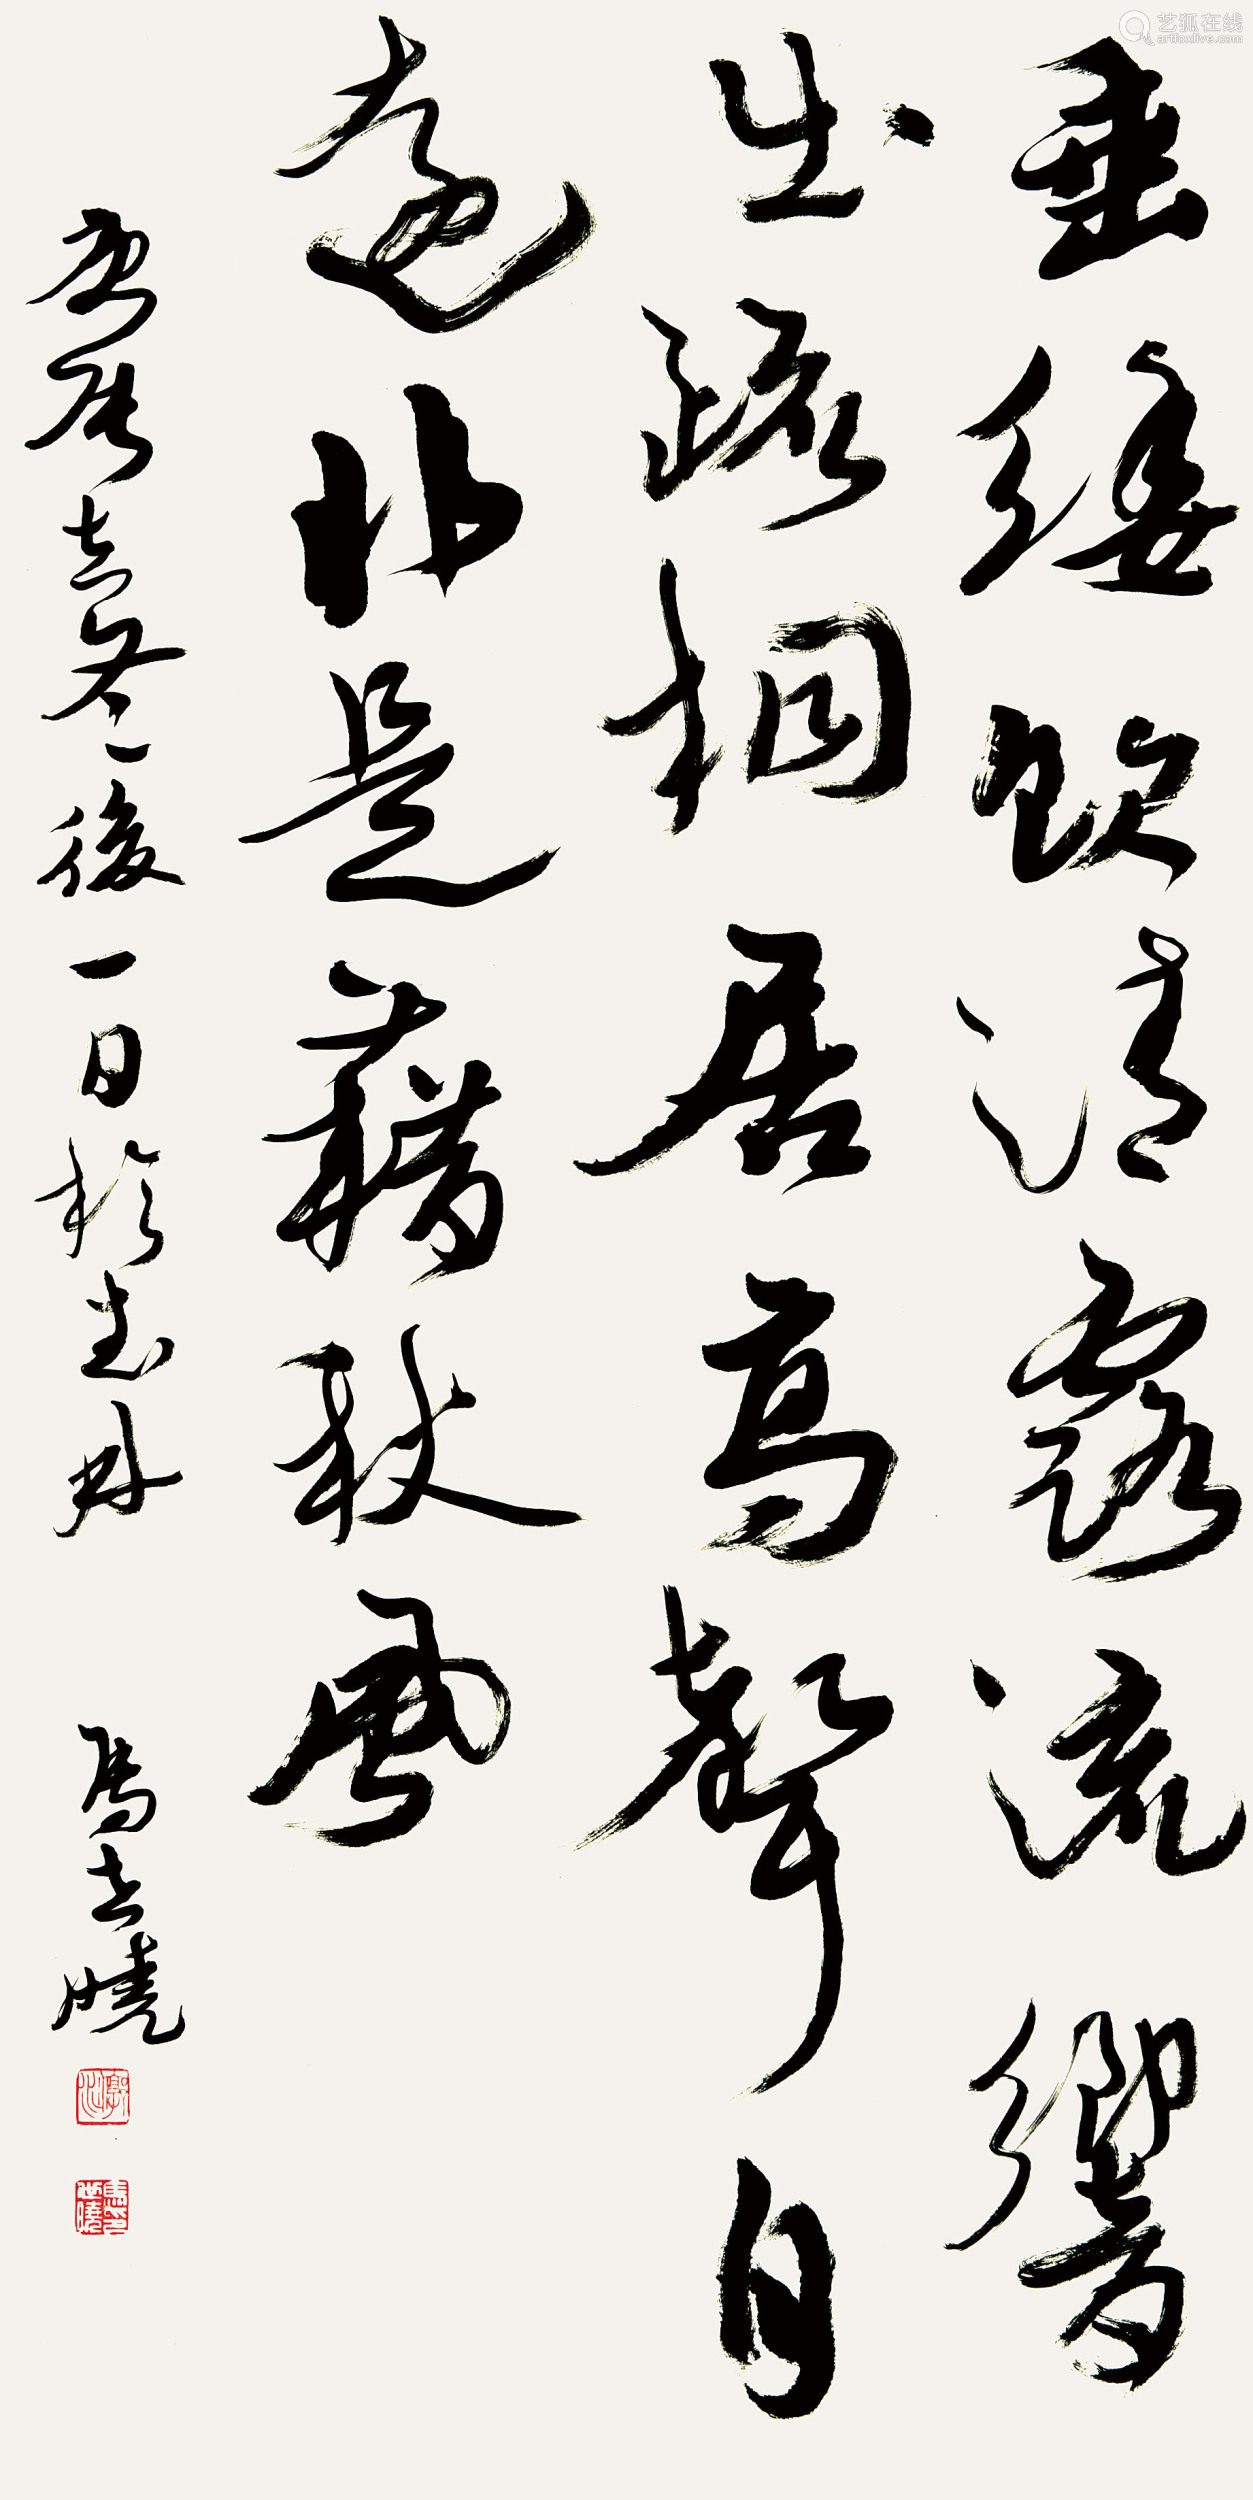 艺狐在线
artfoxlive.com
垂緌飲清露流響
出疏桐居高聲自
遠非是藉秋風
後一日於
馬世曉